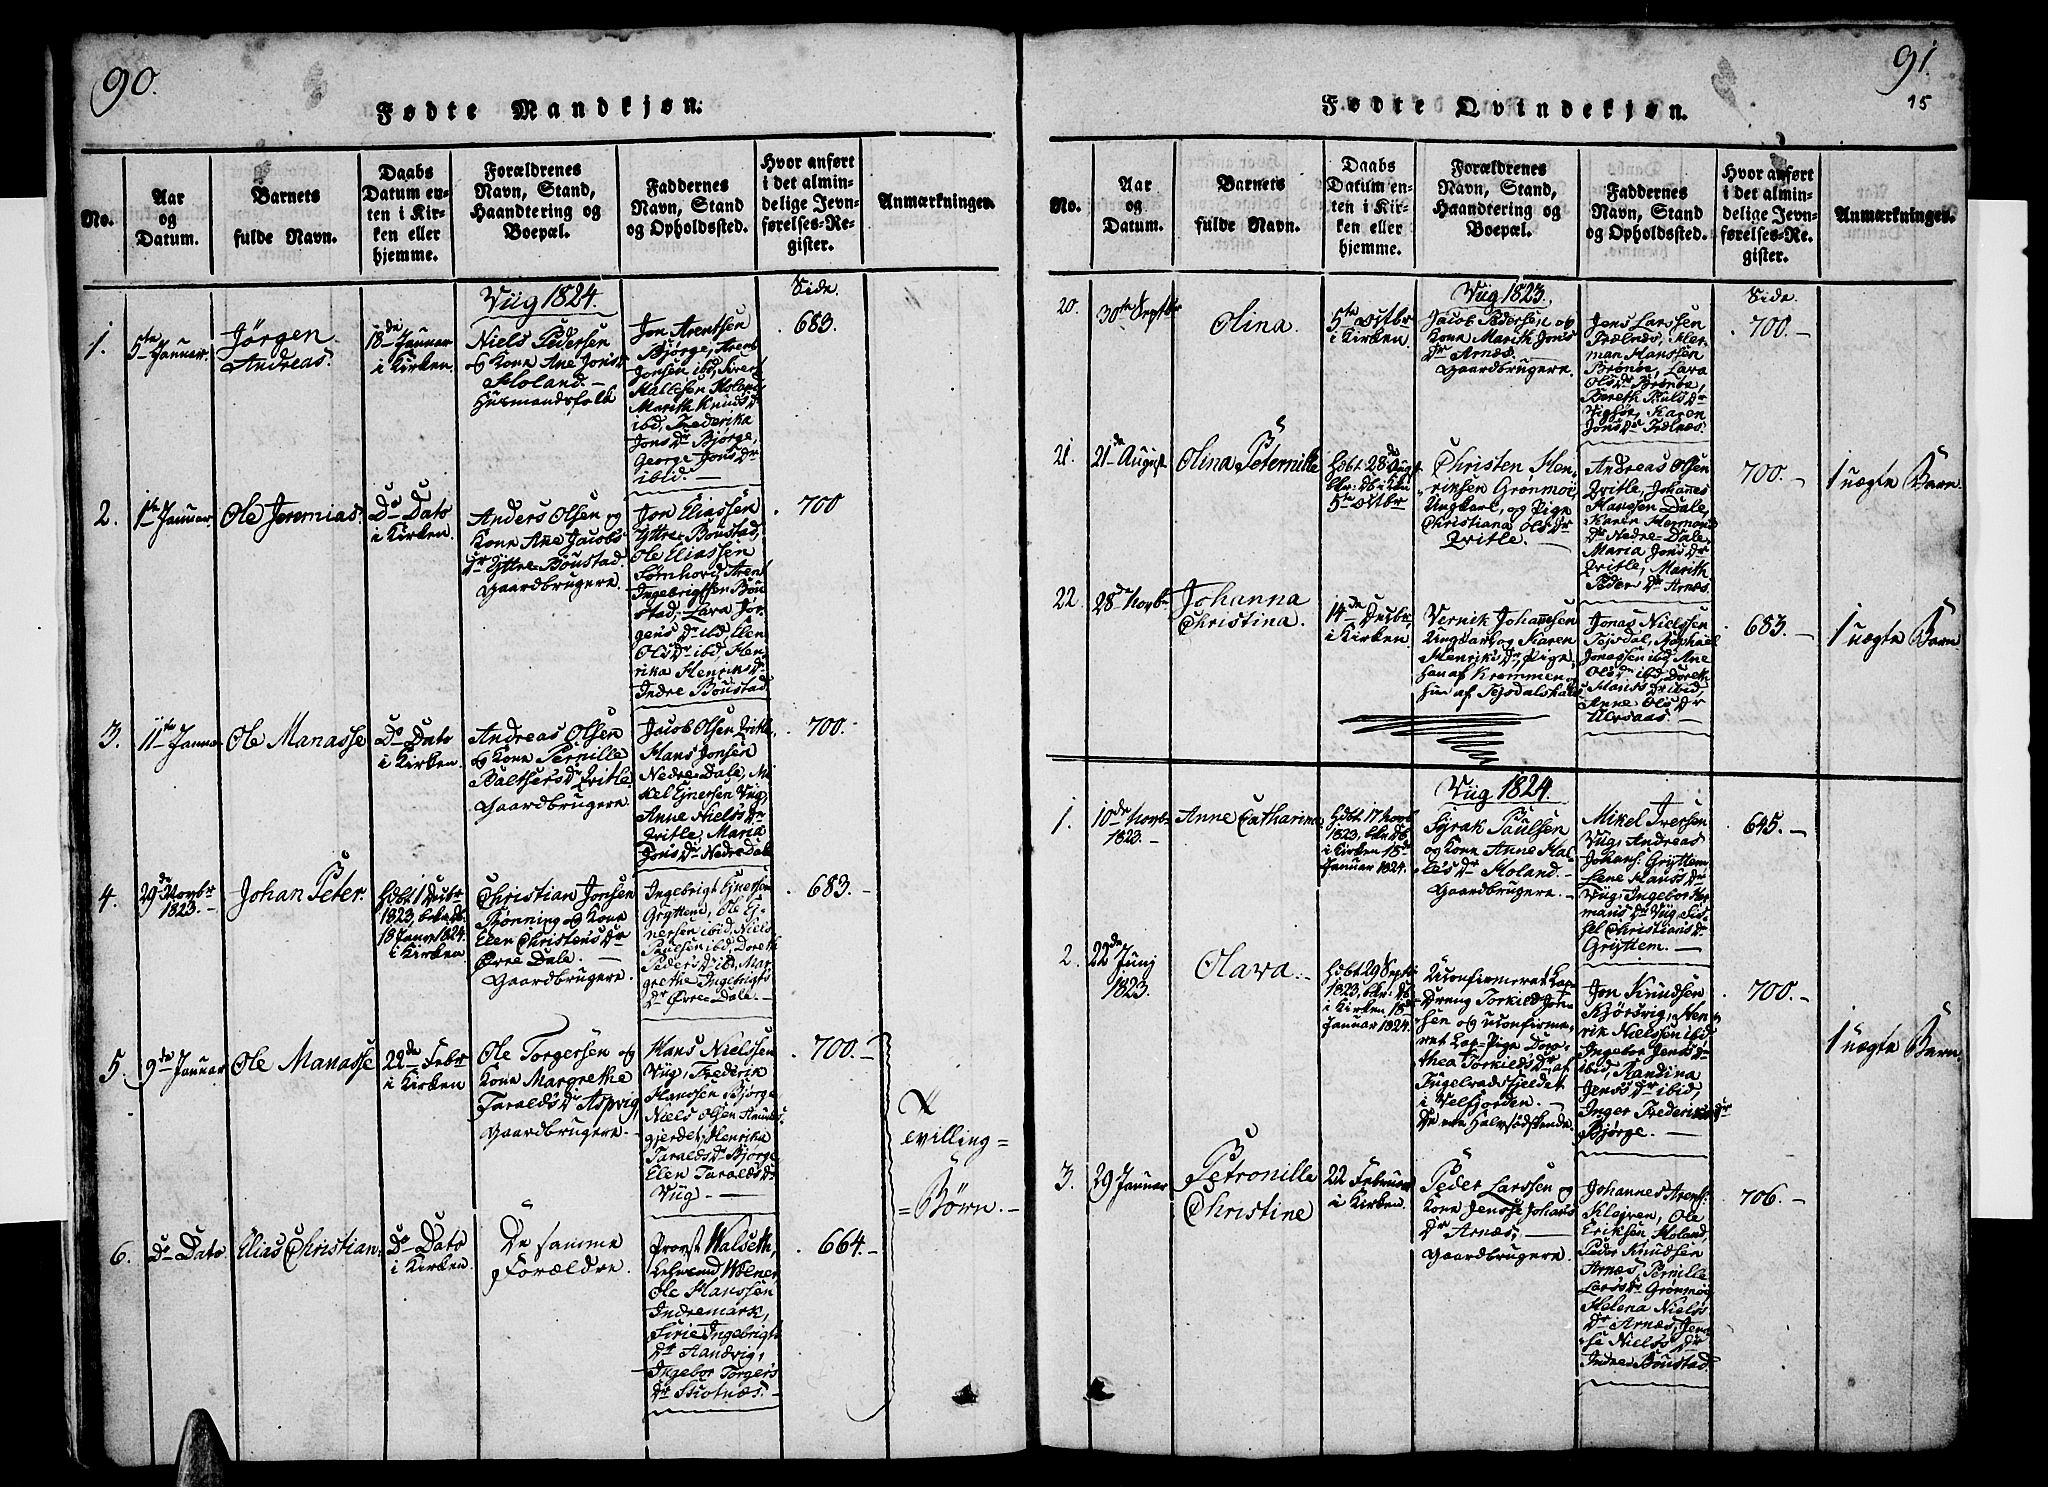 90.
Fødte Mandkjøn.
No.
Aar
og
Datum.
Barnets
fulde Navn.
Daabs
Datum en-
ten i Kir-
ken eller
hjemme.
Forældrenes
Navn, Stand,
Haandtering og
Boepæl.
Faddernes
Navn, Stand
og Opholdssted.
Hvor anført
i det almin-
delige Jevn-
førelses-Re-
gister.
Anmærkninger.
Viig 1824.
Side.
1.
5te Januar.
Jørgen
Andreas.
18de Januar
i Kirken.
Niels Pedersen
og Kone Ane Jons Dr
Holand. —
Huusmandsfolk
Jon Arentsen
Bjørge, Arent
Jonsen ibd,
Holand,
Marith Knuds Dr
ibd, Frederika
Jons Dr Bjørge,
George Jons Dr
ibid. —
683.
2.
1te Januar
Ole Jeremias.
Do Dato
i Kirken.
Anders Olsen og
Kone Ane Jacobs
Dr Yttre-Boustad.
Gaardbrugere.
Jon Eliassen
Yttre-Boustad,
Ole Eliassen
Sømhovd, Arent
Ingebrigtsen Bou
stad, Lara Jør
gens Dr ibd, Elen
Ols Dr ibd, Hen
rika Henriks Dr
Indre Boustad
700
3.
11te Januar
Ole Manasse
Do Dato
i Kirken.
Andreas Olsen
og Kone Pernille
Balthers Dr
Gaardbrugere.
Jacob Olsen
Hans Jonsen
Nedre-Dale, Mi
kel Ejnersen Viig,
Anne Niels Dr
Maria
Jons Dr Nedre Dale
700.
4.
29de Novbr
1823. —
Johan Peter.
Hdbt 1 Decbr
1823,
18 Januar 1824.
i Kirken.
Christian Jonsen
Rønning og Kone
Elen Christens Dr
Øvre Dale. —
Gaardbrugere
Ingebrigt Ejnersen
Gryttem, Ole Ej-
nersen ibid, Niels
Paulsen ibd, Doreth
Peders Dr ibd, Mar
grethe Ingebrigts
Dr Øvre-Dale. —
683. —
5.
9de Januar
Ole Manasse
22de Febr
i Kirken
Ole Torgersen og
Kone Margrethe
Taralds Dr Aspvig,
Gaardbrugere —
Hans Nielssen
Viig, Frederik
Hanssen Bjørge
Niels Olsen
gjerdet, Henrika
Taralds Dr Bjørge
Elen Taralds Dr
Viig —
700. —
Tvilling=
=Børn. —
6.
Do Dato
Elias Christian.
Do Dato
i Kirken.
De samme
Forældre.
Provst Walseth,
Wolner,
Ole Hanssen
Indremark,
Sirie Ingebrigts
Dr Aandvig,
Ingebor Torgers
Dr Skotnæs. —
664. —
91.
15
Fødte Qvindekjøn.
No.
Aar
og
Datum.
Barnets
fulde Navn.
Daabs
Datum en-
ten i Kir-
ken eller
hjemme.
Forældrenes
Navn, Stand,
Haandtering og
Boepæl.
Faddernes
Navn, Stand
og Opholdssted.
Hvor anført
i det almin-
delige Jevn-
førelses-Re-
gister.
Anmærkninger.
Viig 1823.
Side.
20.
30te Septbr
Olina.
5te Octbr
i Kirken.
Jacob Pedersen og
Kone Marith Jons
Dr Arnæs. —
Gaardbrugere.
Jens Larssen
Trælnæs, Her
man Hanssen
Brønøe, Lava
Ols Dr Brønøe,
Bereth Pals Dr
Karen
Jons Dr Trælnæs.
700. —
21.
21de August
Olina Peternille
Hdbt 28de Augt
5te Octbr
Christen Hen
riksen Grønmoe,
Ungkarl, og Pige
Christiana Ols Dr
Andreas Olsen
Johannes
Hanssen Dale,
Karen Hermans
Dr Nedre-Dale,
Maria Jons Dr
Marith
Peder Dr Arnæs.
700. —
1 uægte Barn
22.
28de Novbr
Johanna
Christina.
14de Decbr
i Kirken.
Vernik Johannesen
Ungkarl og Karen
Henriks Dr, Pige,
han af Krommen
hun af
Jonas Nielssen
Tejsdal, Raphael
Jonassen ibd, Ane
Ols Dr ibd, Doreth
Hans Dr ibid,
Anne Ols Dr
Ulvsaas. —
683. —
1 uægte Barn
Viig 1824.
1.
10de Novb
1823. —
Anne Catharine
Hdbt 17 Novb
1823,
i Kirken 18de
Januar 1824.
Syrak Paulsen
og Kone Anne Hal-
les Dr Holand. —
Gaardbrugere. —
Mikel Iversen
Viig, Andreas
Johans: Gryttem,
Lene Hans Dr
Viig, Ingebor Her
mans Dr Viig, Sis-
sel Christians Dr
Gryttem. —
645. —
2.
22de Junj
1823.
Olava. —
Hdbt 29 Septr
1823,
i Kirken 18de
Januar 1824.
Uconfirmeret Lap-
Dreng Torkild Jon
sen og uconfirme-
ret Lap-Pige Doro-
thea Torkilds Dr af
Ingelvadsfjeldet
i Velfjorden. —
De ere Halvsødskende.
Jon Knudsen
Kjørsvig, Hen
rik Nielssen ibd
Ingebor Jens Dr
ibid, Randina
Jens Dr ibid,
Inger Frederiks Dr
Bjørge. —
700. —
1 uægte Barn
3.
29 Januar
Petronille
Christine
22 Februar
i Kirken.
Peder Larssen og
Kone Jensse Johans
Dr Arnæs, —
Gaardbrugere.
Johannes Arents:
Klajven, Ole
Eriksen Holand,
Peder Knudsen
Arnæs, Pernille
Lars Dr Grønmoe,
Helena Niels
Dr Arnæs, Jens-
se Niels Dr
Indre Boustad
706. —